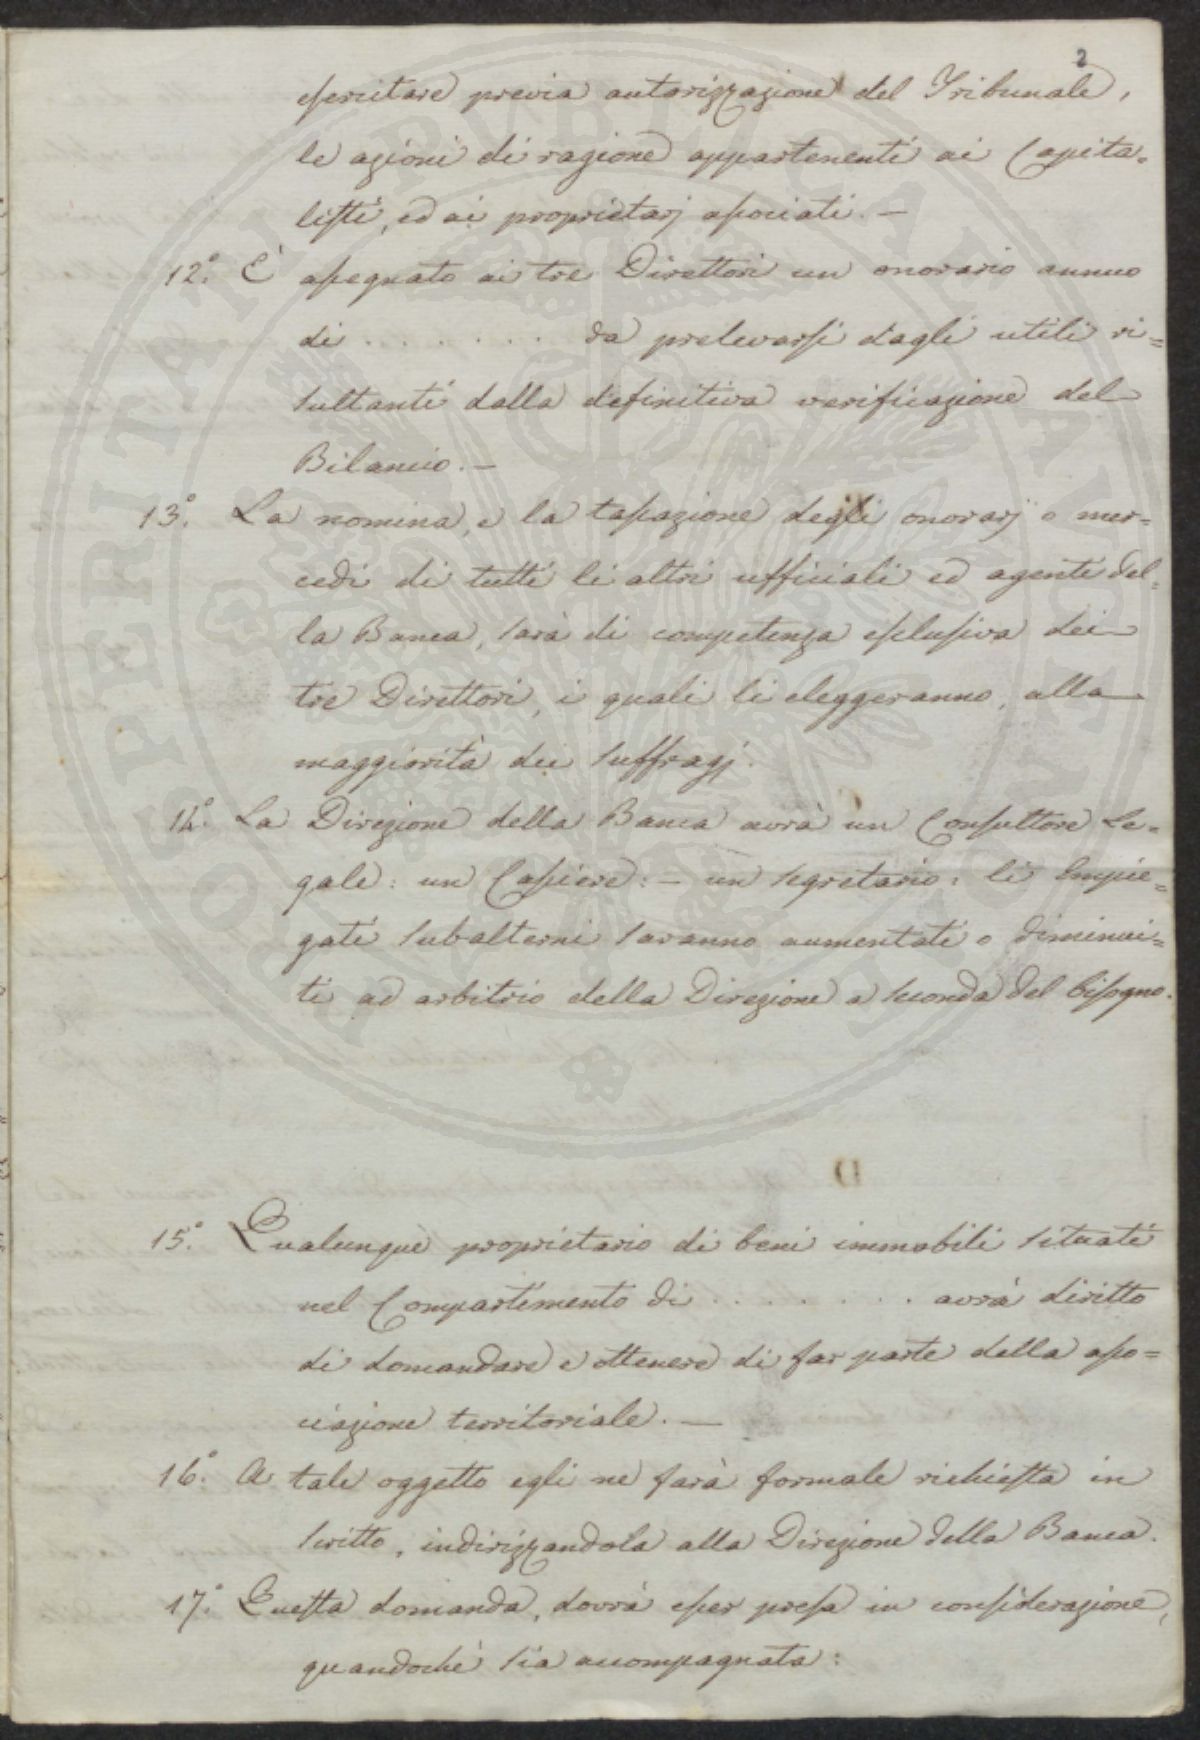 2
esercitare previa autorizzazione del Tribunale,
le azioni di ragione appartenenti ai Capita=
listi, ed ai proprietarj associati. —
12.° È assegnato ai tre Direttori un onorario annuo
di . . . . . . . da prelevarsi dagli utili ri=
sultanti dalla definitiva verificazione del
Bilancio. —
13.° La nomina, e la tassazione degli onorarj o mer=
cedi di tutti li altri ufficiali ed agenti del=
la Banca, sarà di competenza esclusiva dei
tre Direttori, i quali li eleggeranno, alla
maggiorità dei suffragj.
14.° La Direzione della Banca avrà un Consultore Le=
gale: un Cassiere: — un segretario: li Impie=
gati subalterni saranno aumentati o diminui=
ti ad arbitrio della Direzione a seconda del bisogno.
15.° Qualunque proprietario di beni immobili situati
nel Compartimento di . . . . . . . avrà diritto
di domandare e ottenere di far parte della asso=
ciazione territoriale. —
16.° A tale oggetto egli ne farà formale richiesta in
scritto, indirizzandola alla Direzione della Banca.
17.° Questa domanda, dovrà esser presa in considerazione,
quandochè sia accompagnata:
PROSPERITATI PUBLICAE AUGENDAE